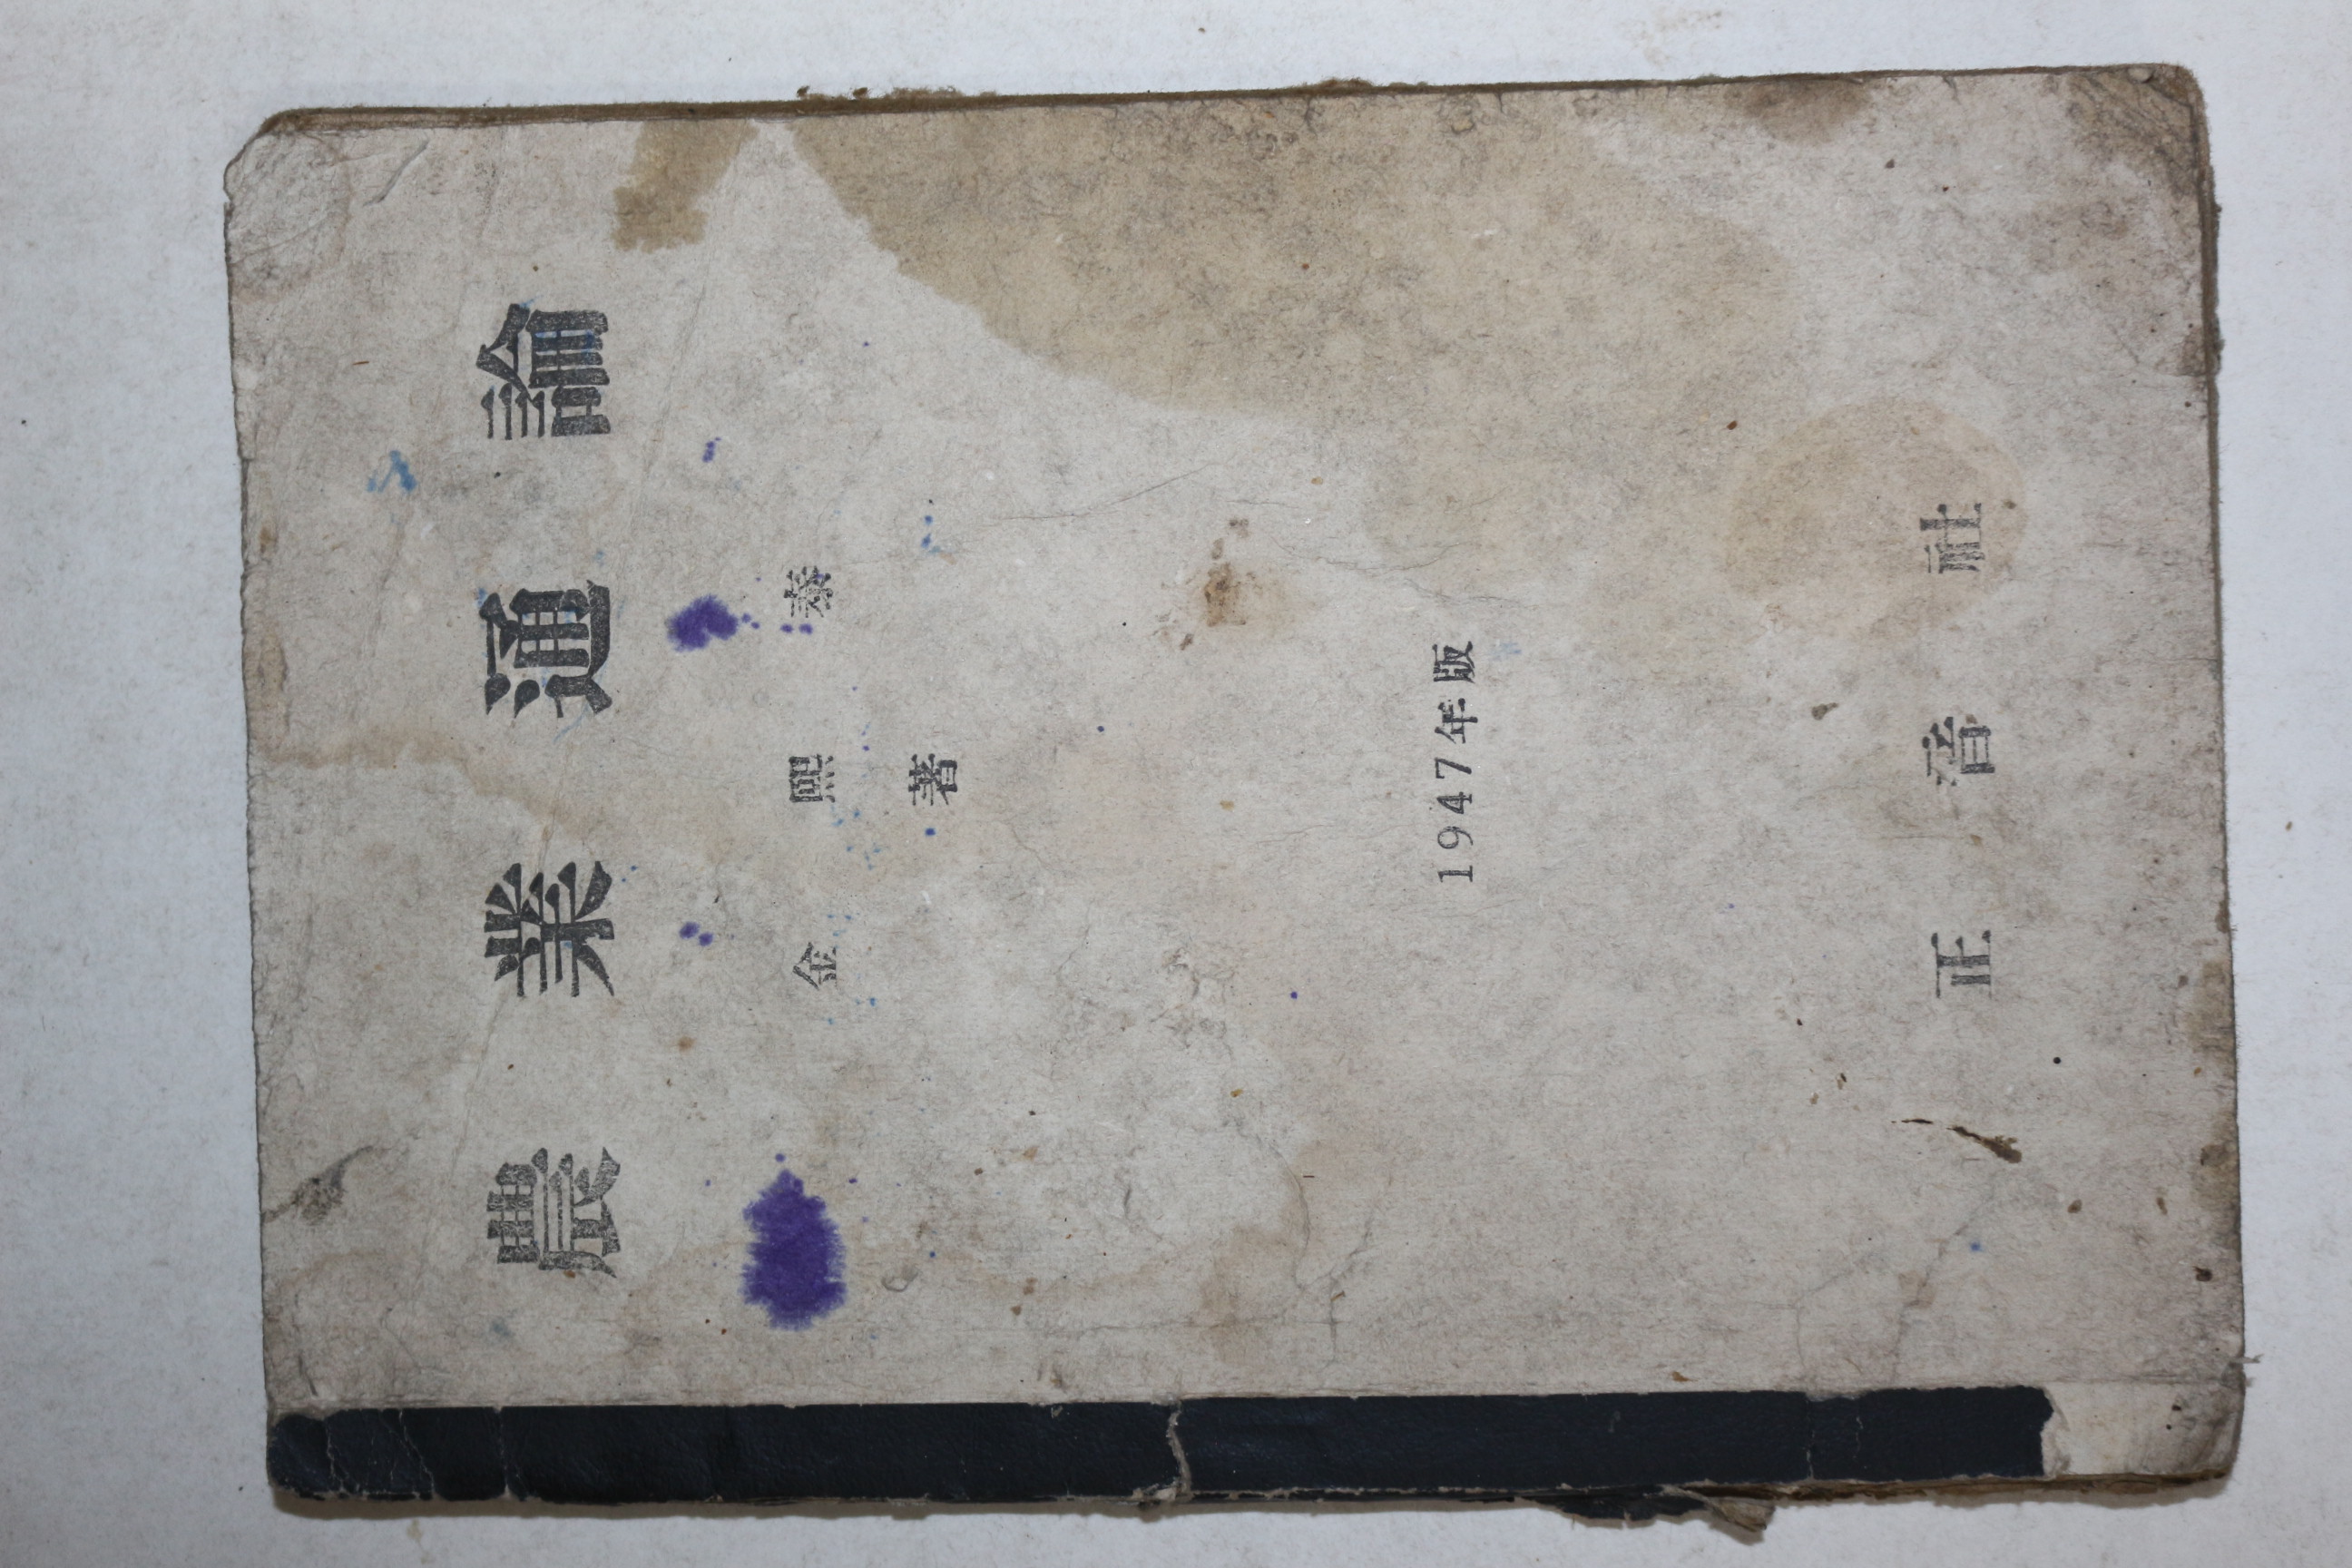 農業通論
金熙泰
著
1947年版
正音社